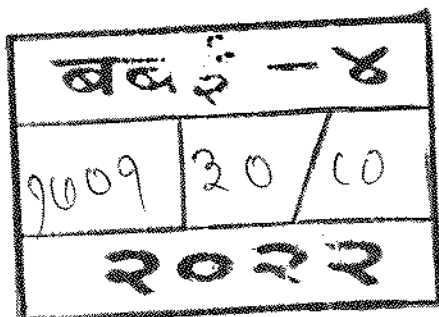 बबई - ४
१७०१ ३० / ८०
२०२२